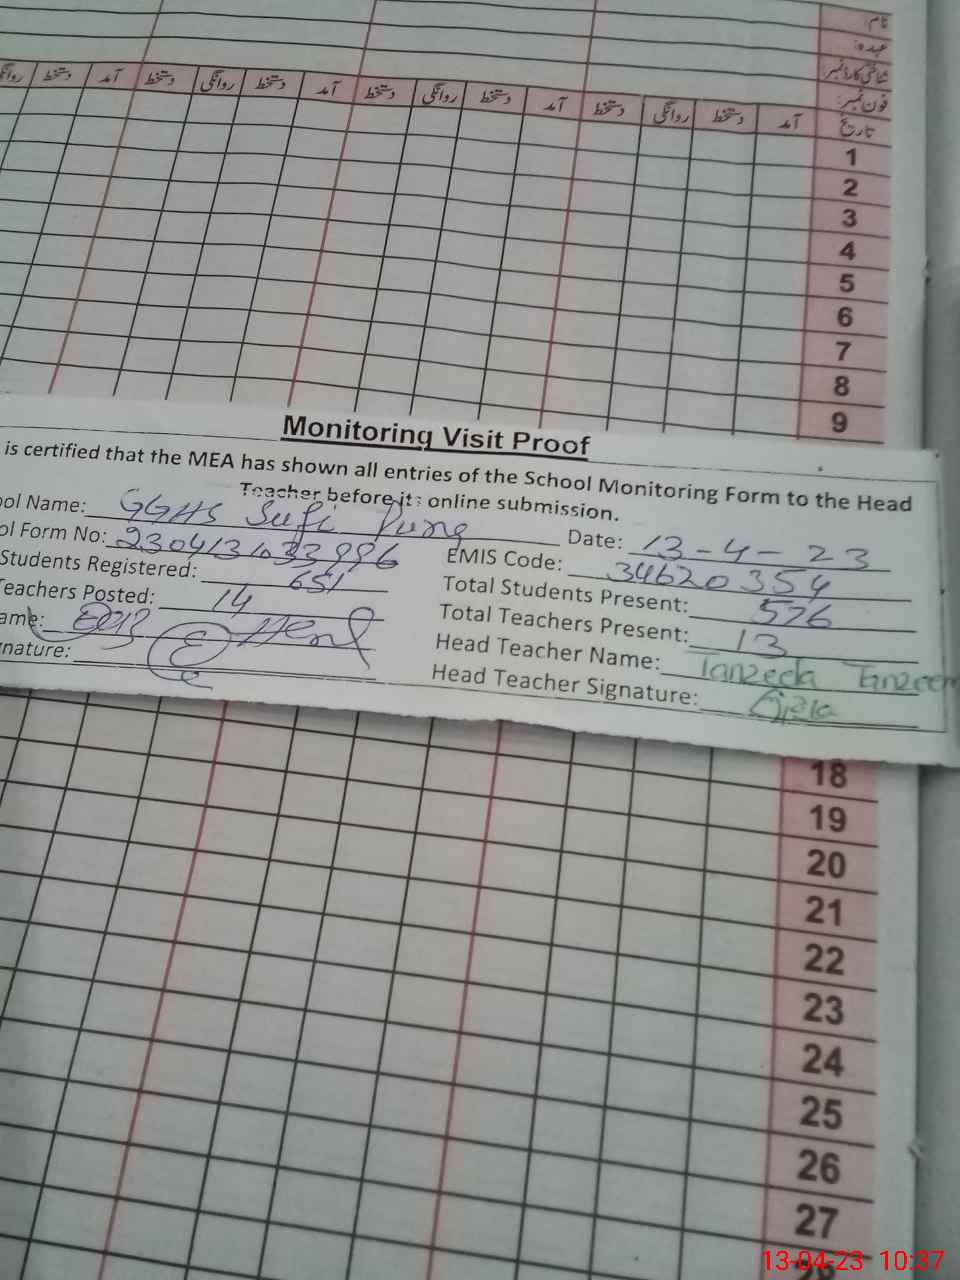 نام:
عہدہ:
شناختی کارڈ نمبر
فون نمبر:
تاریخ آمد دستخط روانگی دستخط آمد دستخط روانگی دستخط آمد دستخط روانگی دستخط آمد دستخط روانگی
1
2
3
4
5
6
7
8
9
Monitoring Visit Proof
is certified that the MEA has shown all entries of the School Monitoring Form to the Head
Teacher before its online submission.
ool Name: GGHS Sufi Pung Date: 13-4-23
ol Form No: EMIS Code: 34620354
Students Registered: 651 Total Students Present: 576
Teachers Posted: 14 Total Teachers Present: 13
ame: Head Teacher Name: Tanzeela
nature: Head Teacher Signature:
18
19
20
21
22
23
24
25
26
27
28
13-04-23 10:37